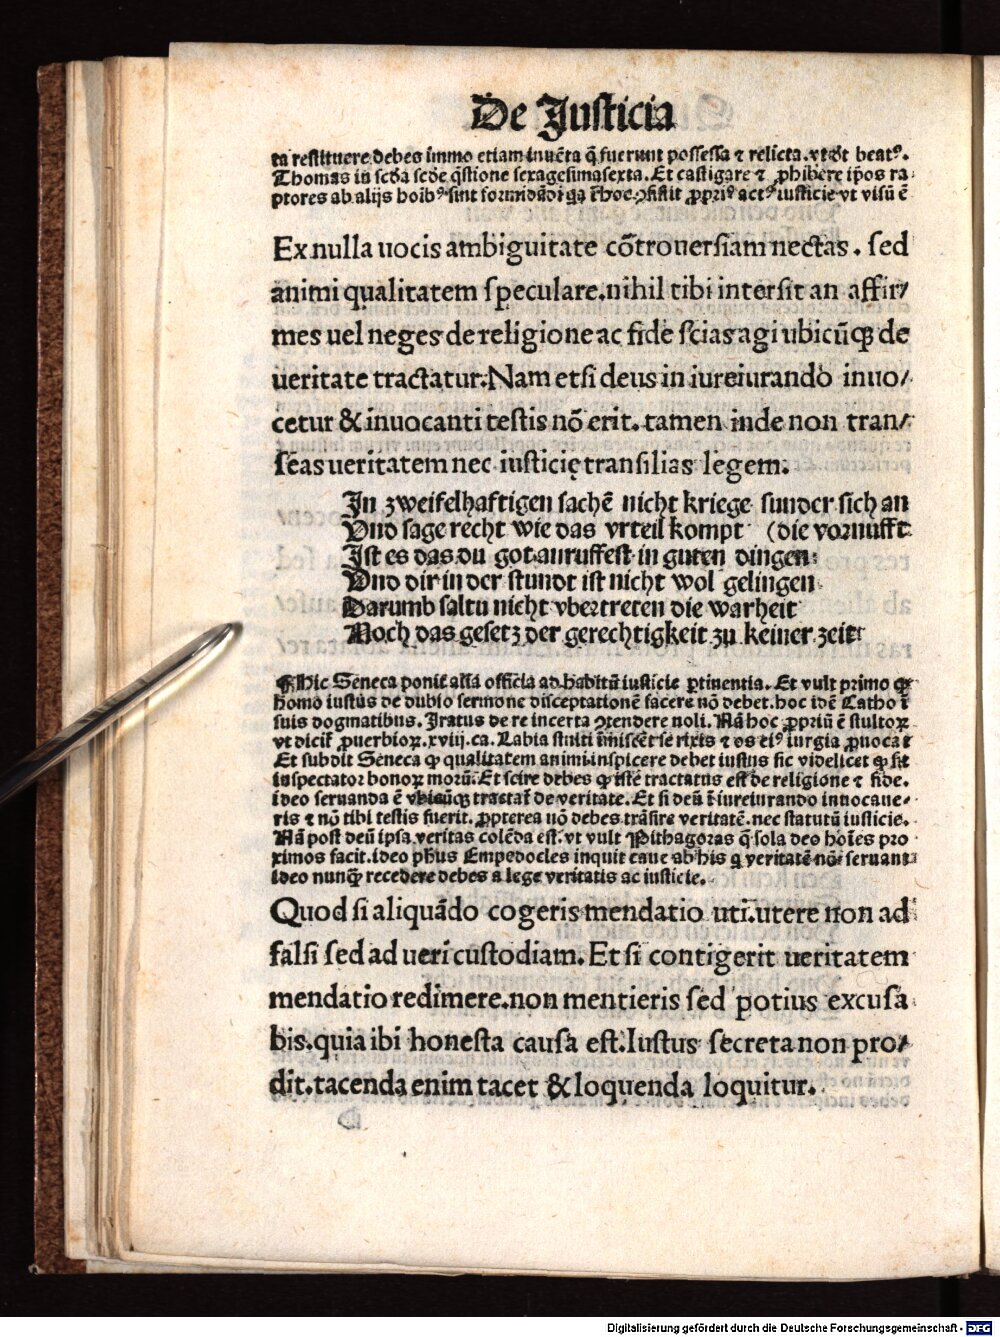 De Justicia
ta restituere debes immo etiam invēta q̄ fuerunt possessa ⁊ relicta. vt dt beatꝰ.
Thomas in scd̄a scd̄e q̄stione sexagesimasexta. Et castigare ⁊ ꝓhibere ip̄os ra
ptores ab alijs hoib⁹ sint formidādi ꝓpri⁹ act⁹ iusticie vt visū ē
Ex nulla uocis ambiguitate cōtrouersiam nectas. sed
animi qualitatem speculare. nihil tibi intersit an affir/
mes uel neges de religione ac fide scias agi ubicūqꝫ de
ueritate tractatur. Nam etsi deus in iureiurando inuo/
cetur & inuocanti testis nō erit. tamen inde non tran/
seas ueritatem nec iusticię transilias legem.
In zweifelhaftigen sachē nicht kriege sunder sich an
Vnd sage recht wie das vrteil kompt (die vornufft
Ist es das du got anruffest in guten dingen
Vnd dir in der stundt ist nicht wol gelingen
Darumb saltu nicht vbertreten die warheit
Noch das gesetz der gerechtigkeit zu keiner zeit
¶ Hic Seneca ponit alia officia ad habitū iusticie ꝑtinentia. Et vult primo ꝙ
homo iustus de dubio sermone disceptationē facere nō debet. hoc idē Catho ī
suis dogmatibus. Iratus de re incerta ꝯtendere noli. Nā hoc ꝓpriū ē stultoꝝ
vt dicit̄ ꝓuerbioꝝ. xviij. ca. Labia stulti īmiscēt se rixis ⁊ os ei⁹ iurgia ꝓuocat
Et subdit Seneca ꝙ qualitatem animi inspicere debet iustus sic videlicet ꝙ sit
inspectator bonoꝝ morū. Et scire debes ꝙ istē tractatus est de religione ⁊ fide.
ideo seruanda ē vbicūqꝫ tractat̄ de veritate. Et si deū ī iureiurando inuocaue-
ris ⁊ nō tibi testis fuerit. ꝓpterea nō debes trāsire veritatē. nec statutū iusticie.
Nā post deū ipsa veritas colēda est. vt vult Pithagoras q̄ sola deo hoīes pro
ximos facit. ideo ph̄us Empedocles inquit caue ab his q̄ veritatē nō seruant
ideo nunqꝫ recedere debes a lege veritatis ac iusticie.
Quod si aliquādo cogeris mendatio uti. utere non ad
falsi sed ad ueri custodiam. Et si contigerit ueritatem
mendatio redimere. non mentieris sed potius excusa
bis. quia ibi honesta causa est. Iustus secreta non pro/
dit. tacenda enim tacet & loquenda loquitur.
Digitalisierung gefördert durch die Deutsche Forschungsgemeinschaft - DFG